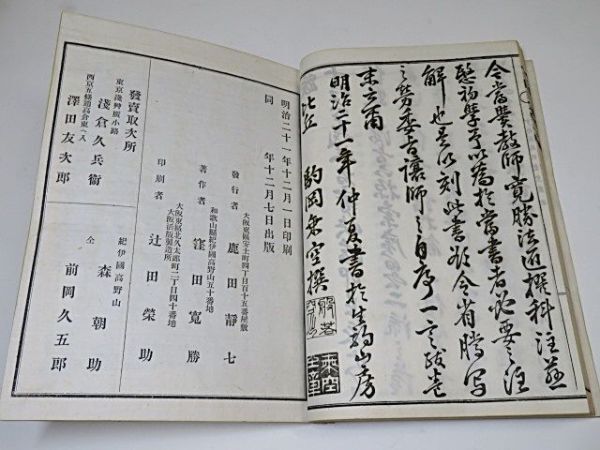 今當黌教師寛勝法匠撰科注益
愍初學予以為於當書者必要之注
解也是以刻此書欲令省謄写
之勞委者讓師之自序一言跋卷
末云爾
明治二十一年仲夏書於生駒山房
乗空撰
明治二十一年十二月一日印刷
同　　　年十二月七日出版
大阪東區安土町四丁目百十五番屋敷
發行者　鹿田靜七
和歌山縣紀伊國高野山五十番地
著作者　窪田寛勝
大阪東區北久太郎町二丁目四十番地
大阪活版製造所
印刷者　辻田榮助
發賣取次所
東京淺艸廣小路
淺倉久兵衞
西京五條通高倉東へ入
澤田友次郎
紀伊國高野山
森朝助
仝
前岡久五郎